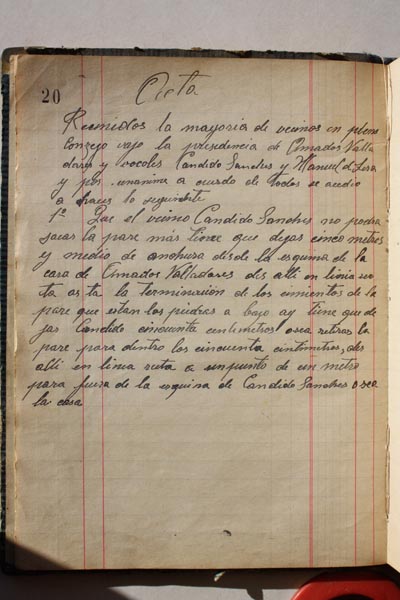 20
Acta
Reunidos la mayoria de vecinos en pleno
Consejo vajo la presidencia de Amados Valla
dares y vocoles Candido Sanches y Manuel d
y por unanima a cuerdo de todos se
a el siguiente
1º Que el vecino Candido Sanches no podra
sacar la pare más tiene que dejas cinco metros
y medio de anchura desde la esquina de la
casa de Amados Valladares des alli en linia re
ta as ta la terminaxión de los cimientos de la
pare que estan las piedras a bajo ay tiene que de
jas Candido cincuenta centimetros osea retiras la
pare para dentro los cincuenta cintimetros, des
alli en linia reta a unpunto de un metro
para fuera de la esquina de Candido Sanches o sea
la casa